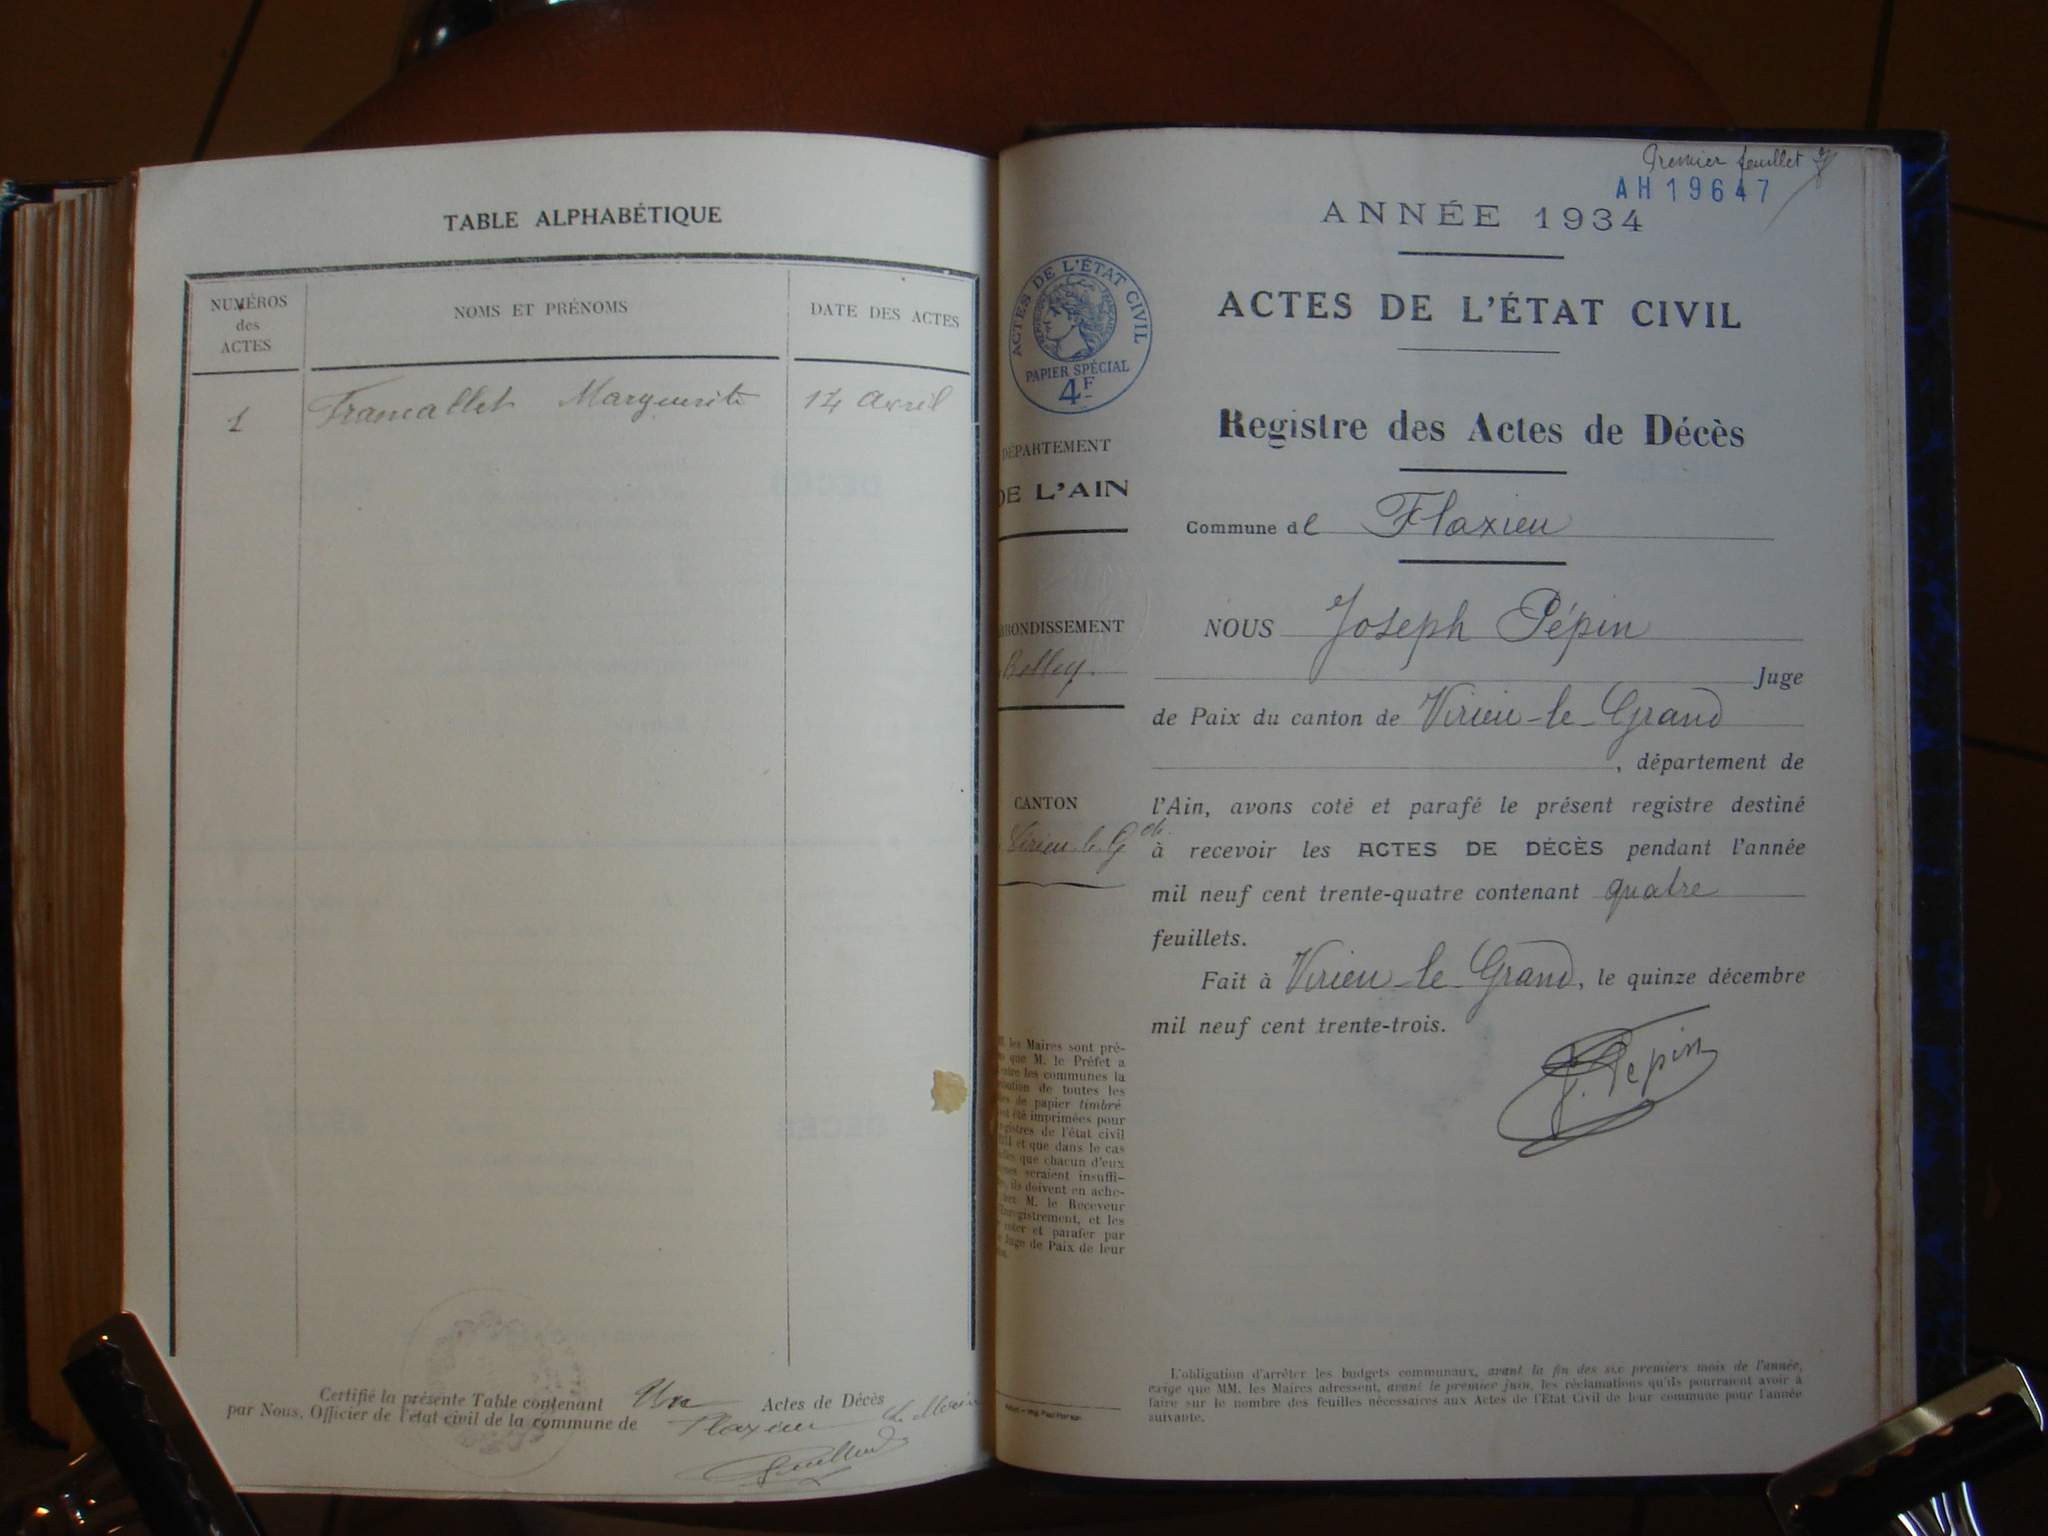 TABLE ALPHABÉTIQUE
NUMÉROS
des
ACTES
NOMS ET PRÉNOMS
DATE DES ACTES
1 Francallet Marguerite 14 avril
Certifié la présente Table contenant Un Actes de Décès
par Nous, Officier de l'état civil de la commune de Flaxieu Le Maire
Premier feuillet
AH19647
ANNÉE 1934
ACTES DE L'ÉTAT CIVIL
PAPIER SPÉCIAL
4F
ACTES DE L'ÉTAT CIVIL
Registre des Actes de Décès
DÉPARTEMENT
DE L'AIN
Commune de Flaxieu
ARRONDISSEMENT
Belley
NOUS Joseph Pépin
Juge
de Paix du canton de Virieu-le-Grand
, département de
CANTON
Virieu-le-Gd
l'Ain, avons coté et parafé le présent registre destiné
à recevoir les ACTES DE DÉCÈS pendant l'année
mil neuf cent trente-quatre contenant quatre
feuillets.
Fait à Virieu-le-Grand, le quinze décembre
mil neuf cent trente-trois.
J. Pepin
les Maires sont pré-
que M. le Préfet a
les communes la
de toutes les
de papier timbré
été imprimées pour
registres de l'état civil
et que dans le cas
que chacun d'eux
seraient insuffi-
ils doivent en ache-
M. le Receveur
Enregistrement, et les
et parafer par
Juge de Paix de leur
L'obligation d'arrêter les budgets communaux, avant la fin des six premiers mois de l'année,
exige que MM. les Maires adressent, avant le premier juin, les réclamations qu'ils pourraient avoir à
faire sur le nombre des feuilles nécessaires aux Actes de l'État Civil de leur commune pour l'année
suivante.